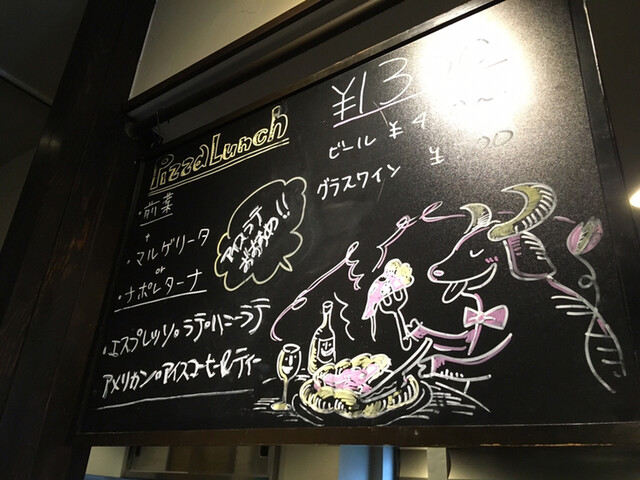 Pizza Lunch
・前菜
+
・マルゲリータ
or
・ナポレターナ
・エスプレッソ。ラテ・ハニーラテ
アメリカン。アイスコーヒー・ティー
アイスラテ
おすすめ!!
ビール ¥4
グラスワイン ¥